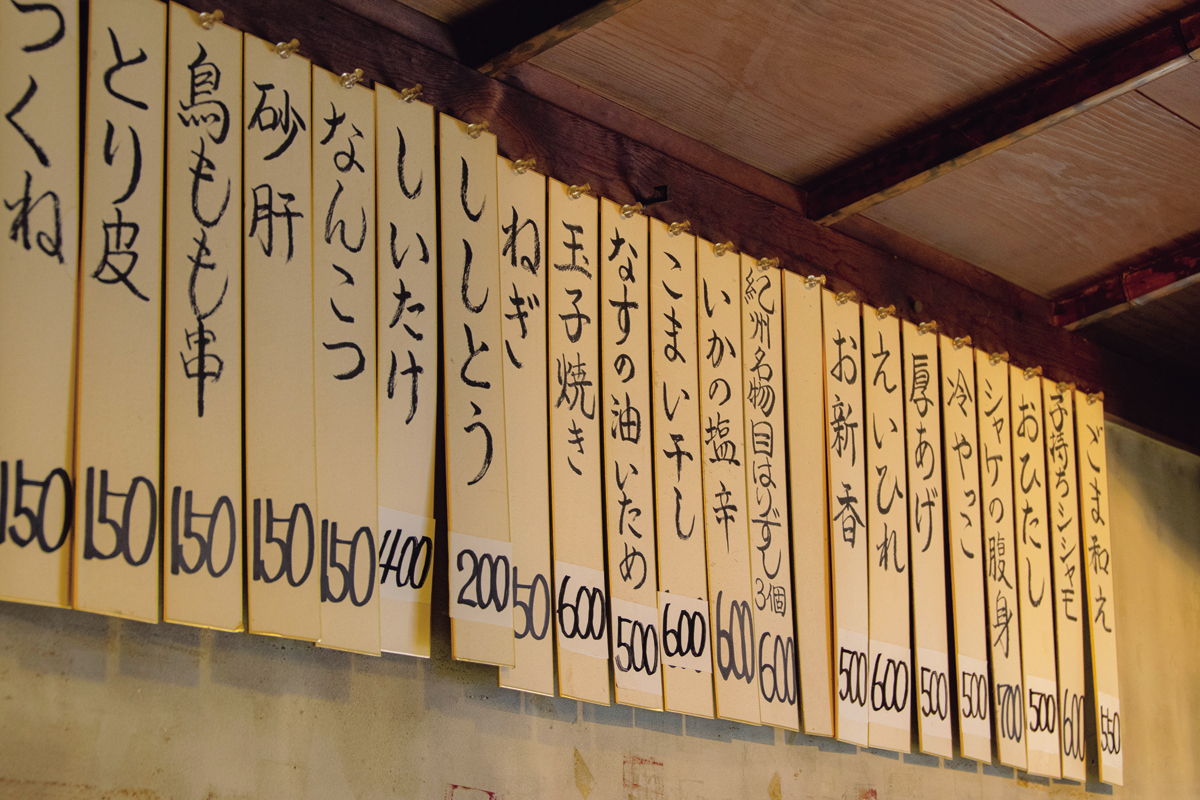 ごま和え 550
子持ちシシャモ 600
おひたし 500
シャケの腹身 700
冷やっこ 500
厚あげ 500
えいひれ 600
お新香 500
紀州名物 目はりずし 3個 600
いかの塩辛 600
こまい干し 600
なすの油いため 500
玉子焼き 600
ねぎ 50
ししとう 200
しいたけ 400
なんこつ 150
砂肝 150
鳥もも串 150
とり皮 150
つくね 150